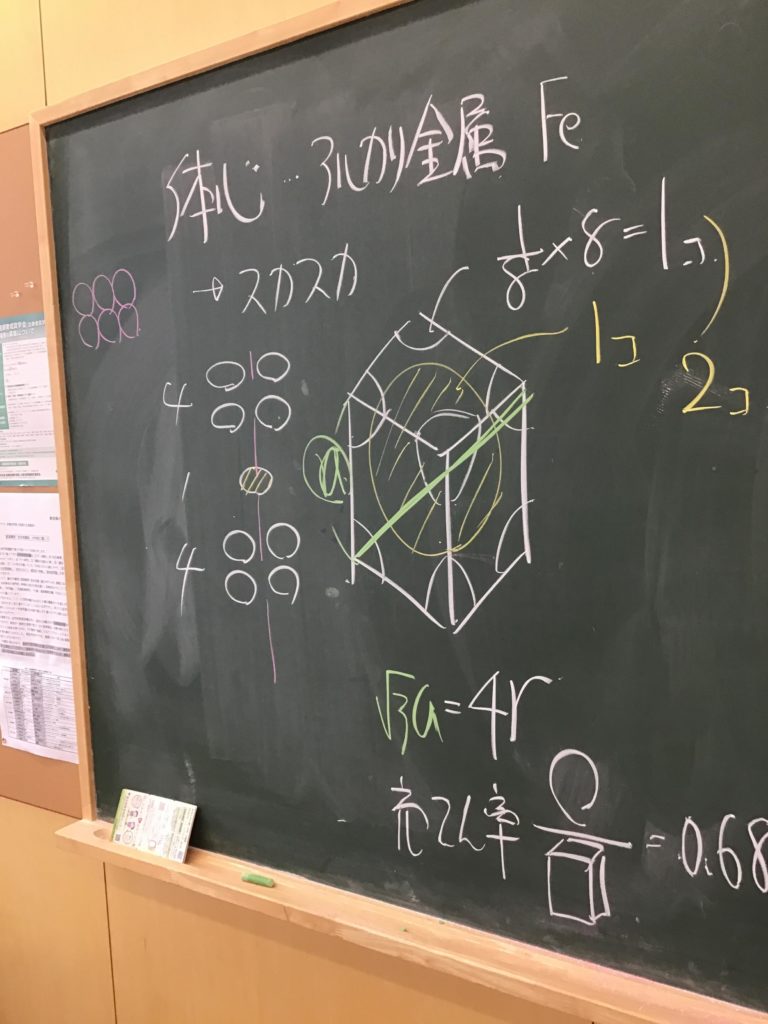 体心…アルカリ金属 Fe
→スカスカ
1/8×8=1コ
1コ
2コ
4
1
4
a
√3a=4r
充てん率
=0.68